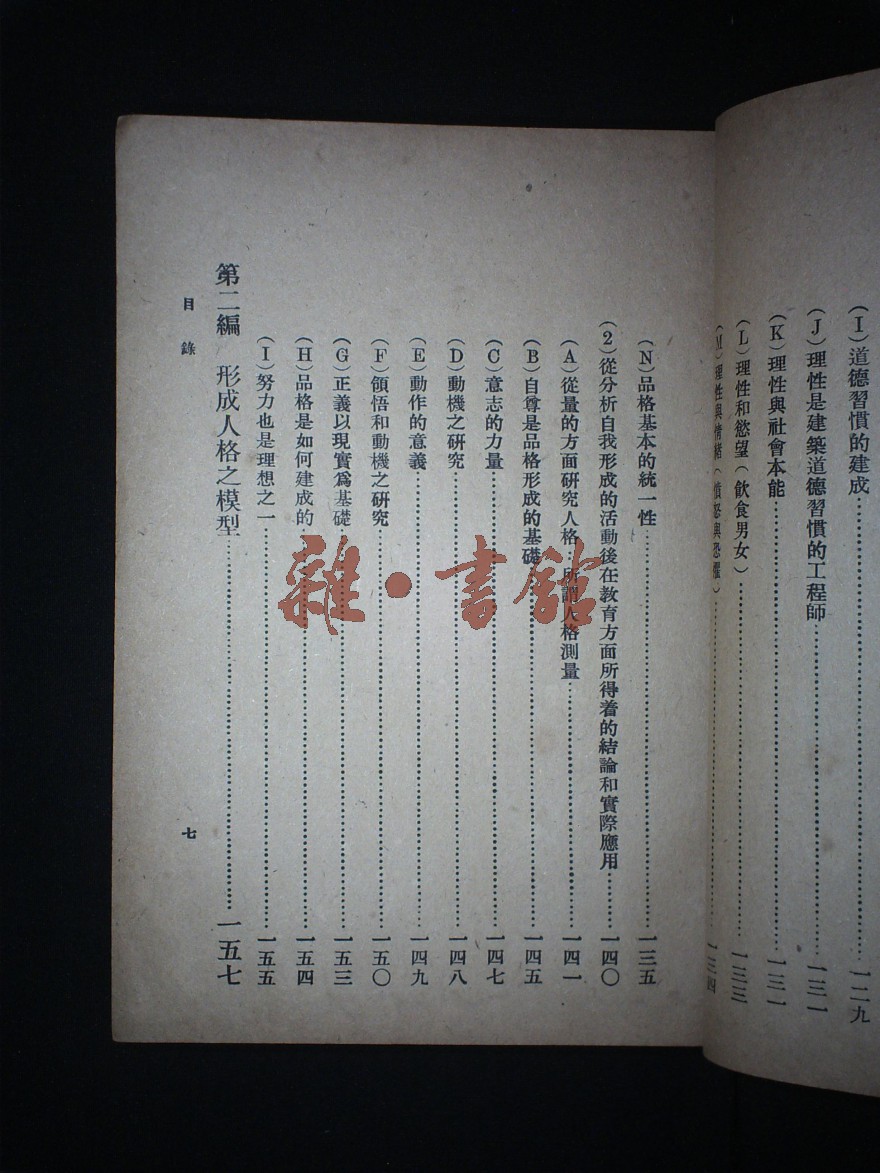 (I)道德習慣的建成……一二九
(J)理性是建築道德習慣的工程師……一三一
(K)理性與社會本能……一三一
(L)理性和慾望(飲食男女)……一三三
(M)理性與情緒(憤怒與恐懼)……一三四
(N)品格基本的統一性……一三五
(2)從分析自我形成的活動後在教育方面所得着的結論和實際應用……一四〇
(A)從量的方面研究人格:所謂人格測量……一四一
(B)自尊是品格形成的基礎……一四五
(C)意志的力量……一四七
(D)動機之研究……一四八
(E)動作的意義……一四九
(F)領悟和動機之研究……一五〇
(G)正義以現實爲基礎……一五三
(H)品格是如何建成的……一五四
(I)努力也是理想之一……一五五
第二編 形成人格之模型……一五七
目錄
七
雜·書館